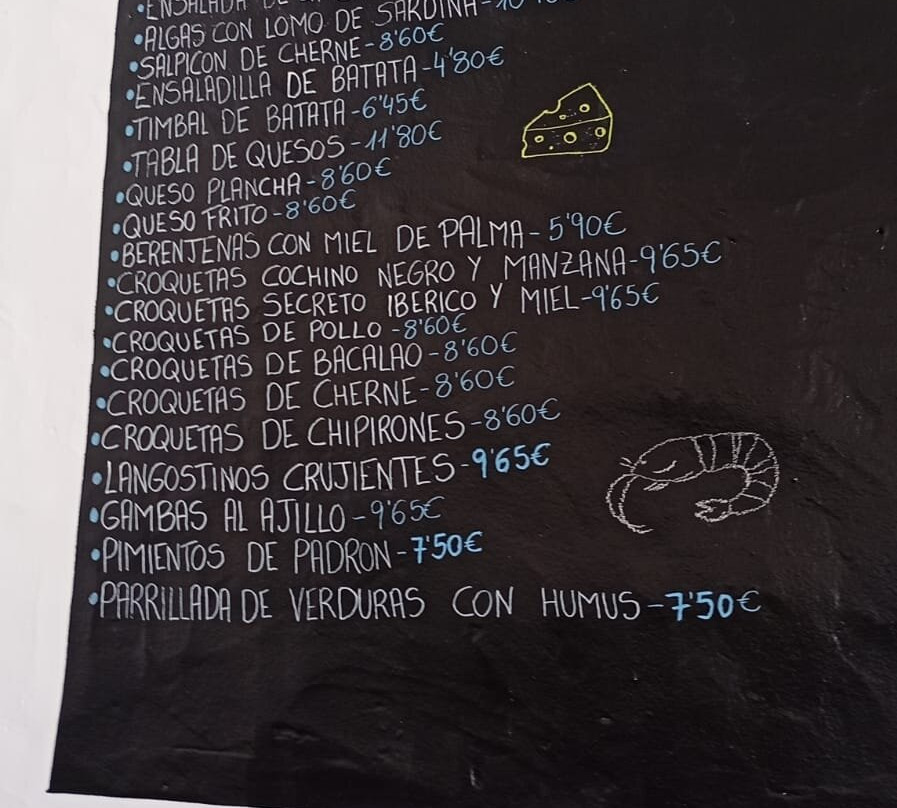 •ENSALADA DE
•ALGAS CON LOMO DE SARDINA-10
•SALPICON DE CHERNE-8'60€
•ENSALADILLA DE BATATA-4'80€
•TIMBAL DE BATATA-6'45€
•TABLA DE QUESOS-11'80€
•QUESO PLANCHA-8'60€
•QUESO FRITO-8'60€
•BERENJENAS CON MIEL DE PALMA-5'90€
•CROQUETAS COCHINO NEGRO Y MANZANA-9'65€
•CROQUETAS SECRETO IBERICO Y MIEL-9'65€
•CROQUETAS DE POLLO-8'60€
•CROQUETAS DE BACALAO-8'60€
•CROQUETAS DE CHERNE-8'60€
•CROQUETAS DE CHIPIRONES-8'60€
•LANGOSTINOS CRUJIENTES-9'65€
•GAMBAS AL AJILLO-9'65€
•PIMIENTOS DE PADRON-7'50€
•PARRILLADA DE VERDURAS CON HUMUS-7'50€